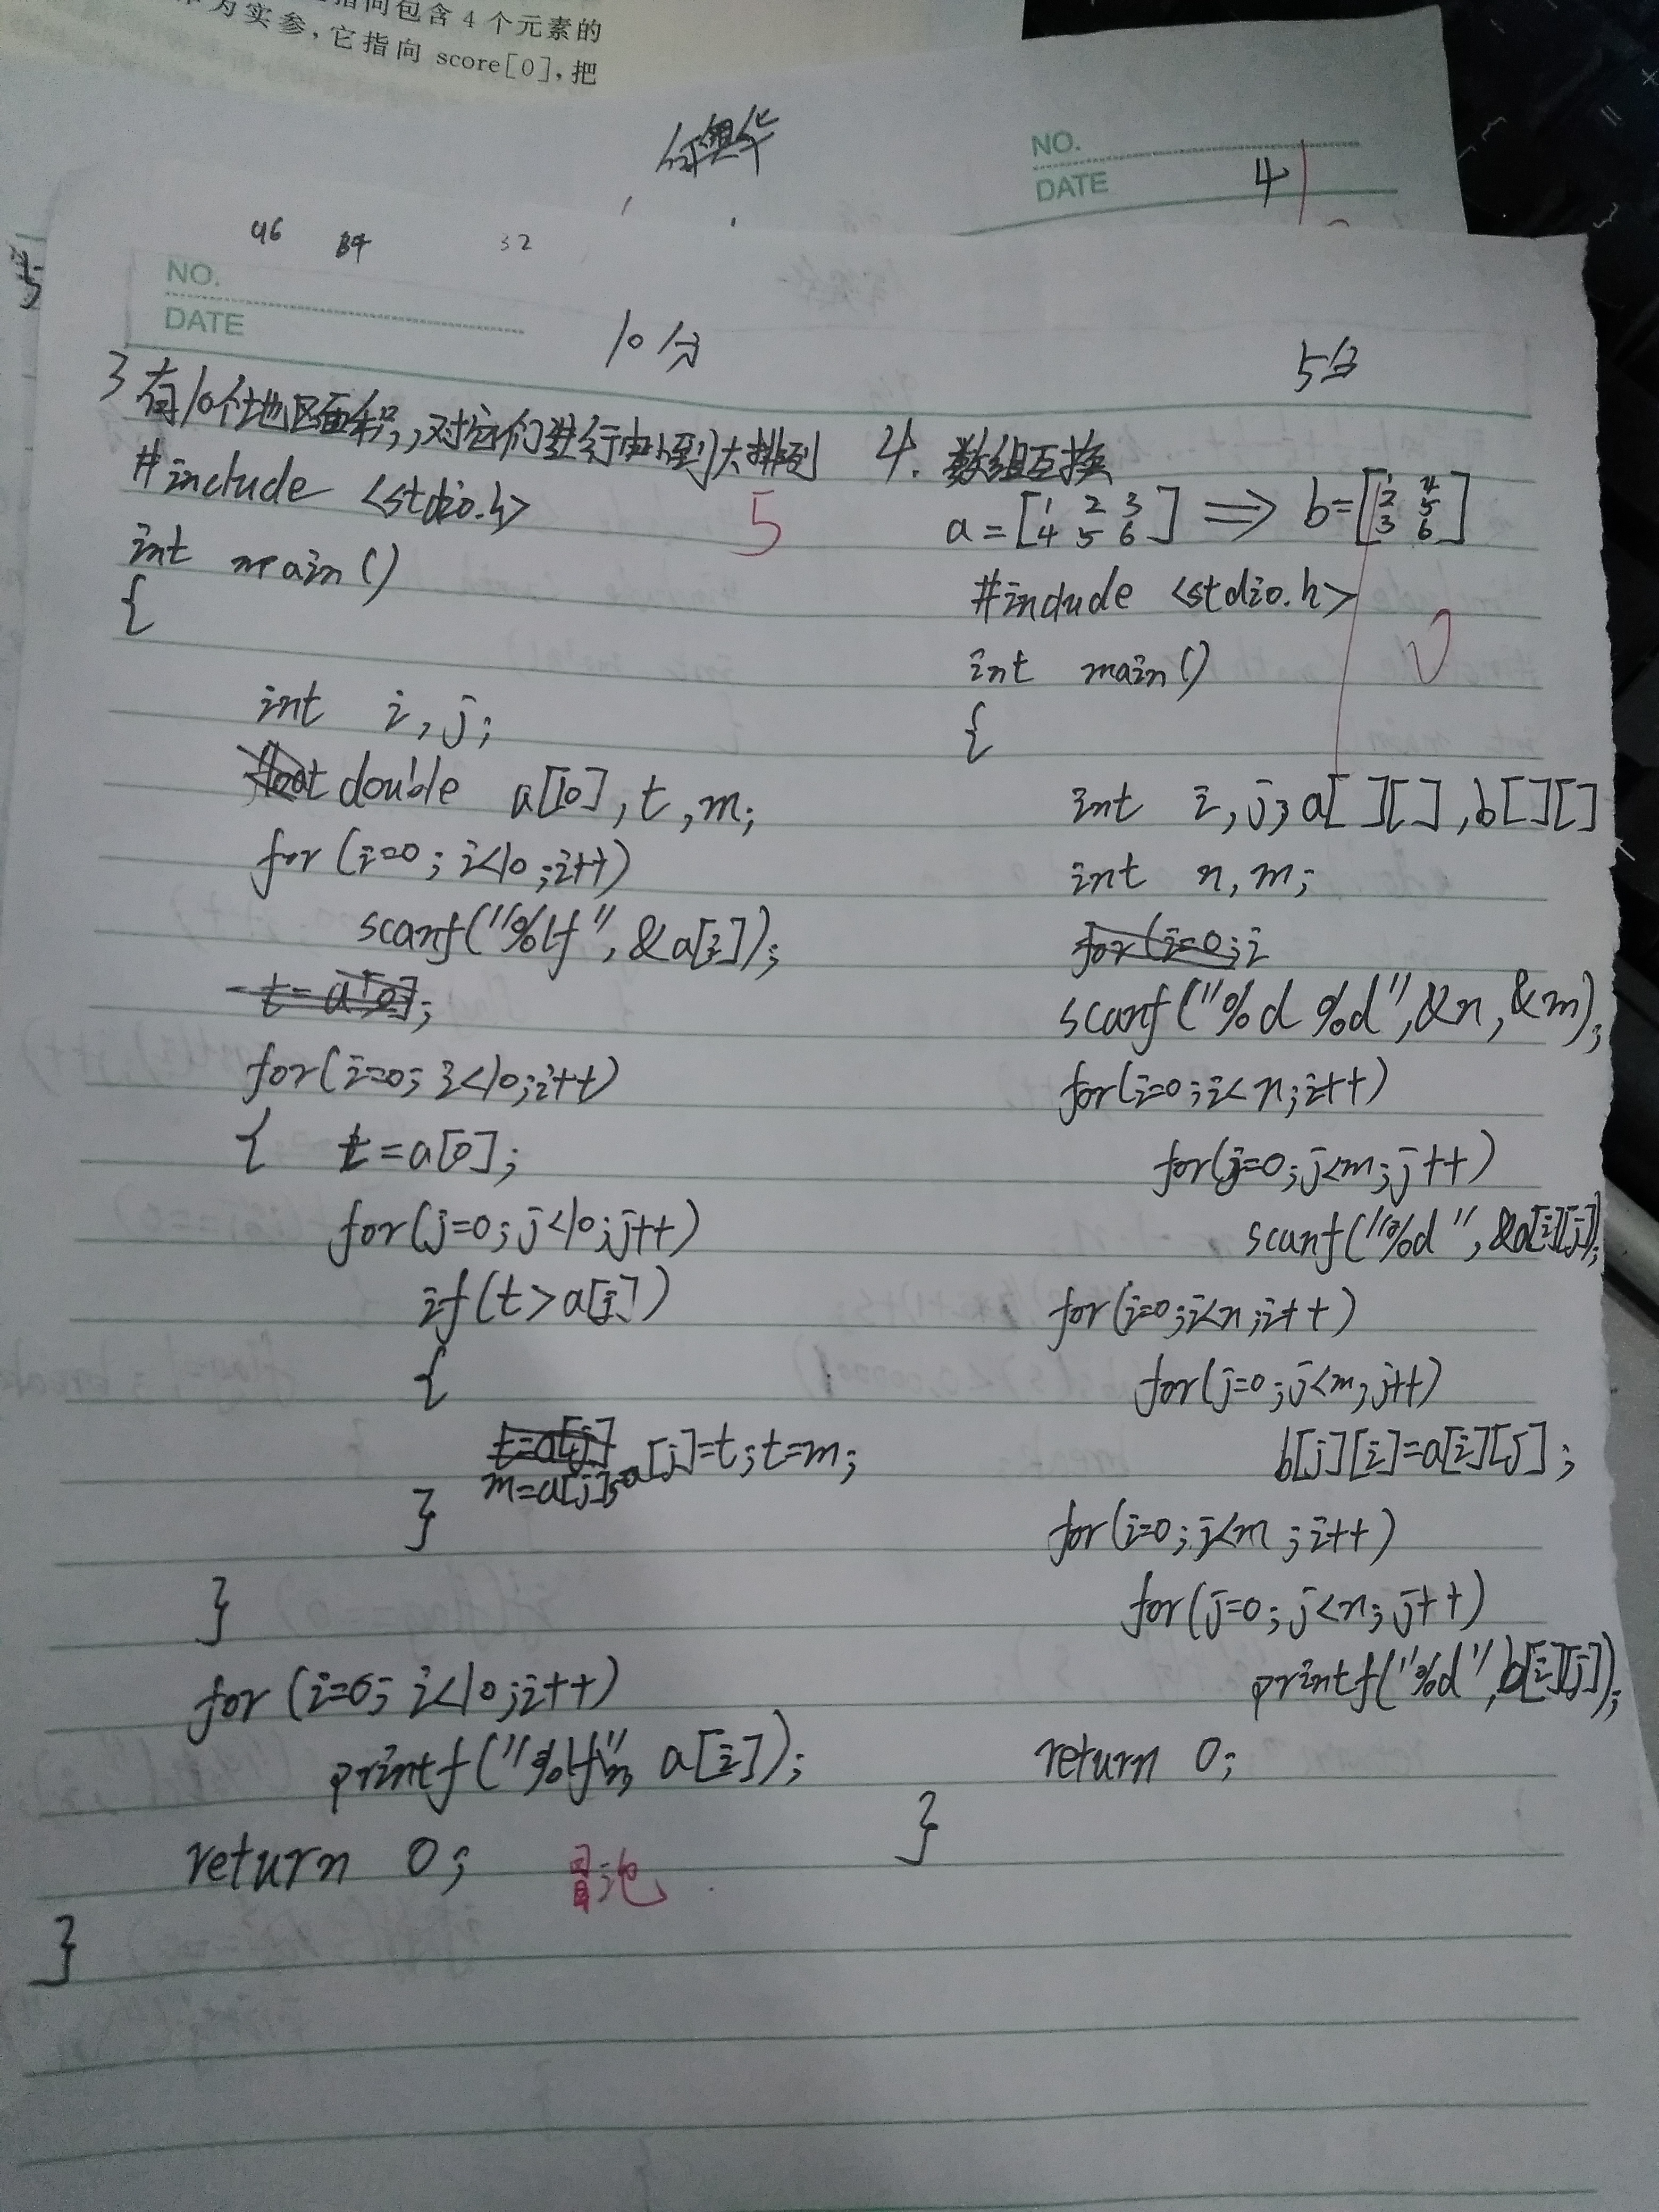 指向包含 4 个元素的
为实参,它指向 score[0],把
NO.
DATE
4
46 84 32
NO.
DATE
10分
3 有10个地区面积,,对它们进行由小到大排列
#include <stdio.h>
5
int main()
{
int i,j;
double a[10],t,m;
for(i=0;i<10;i++)
scanf("%lf",&a[i]);
t=a[0];
for(i=0;i<10;i++)
{ t=a[0];
for(j=0;j<10;j++)
if(t>a[j])
{
t=a[j]
m=a[j];a[j]=t;t=m;
}
}
for(i=0;i<10;i++)
printf("%lf", a[i]);
return 0;
冒泡
}
5分
4. 数组互换
a=[1 2 3 ⟹ b=[1 4
4 5 6] 2 5
3 6]
#include <stdio.h>
int main()
{
int i,j,a[][],b[][]
int n,m;
for(i=0;i
scanf("%d %d",&n,&m);
for(i=0;i<n;i++)
for(j=0;j<m;j++)
scanf("%d",&a[i][j]);
for(i=0;i<n;i++)
for(j=0;j<m;j++)
b[j][i]=a[i][j];
for(i=0;j<m;i++)
for(j=0;j<n;j++)
printf("%d",b[i][j]);
return 0;
}